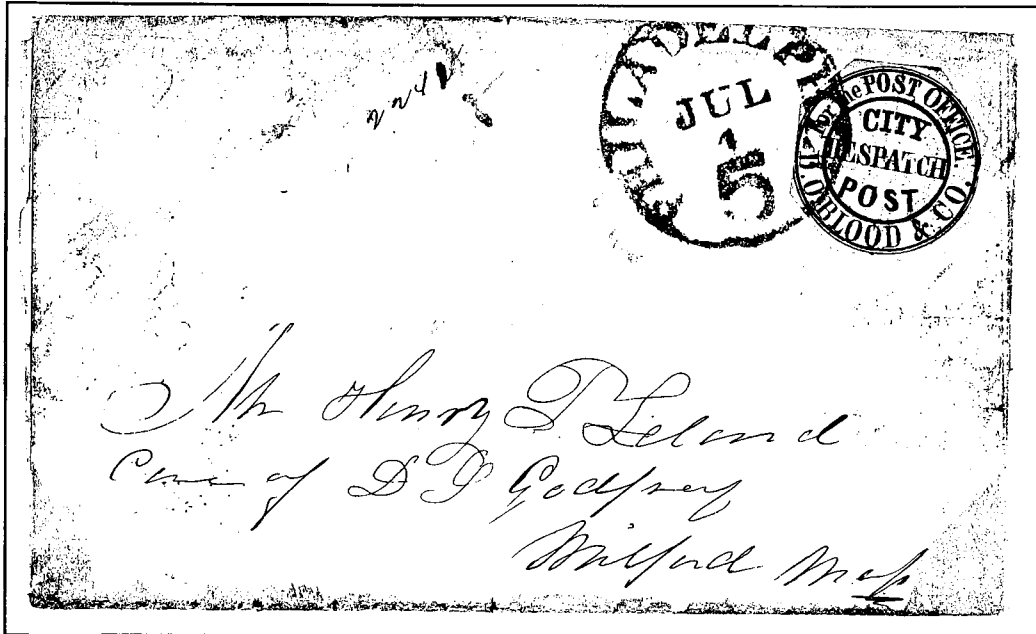 PHILADELPHIA
JUL
1
5
For the POST OFFICE.
CITY
DESPATCH
POST
D.O. BLOOD & CO.
Mr Henry T. Leland
Care of D S Godfrey
Milford Mass